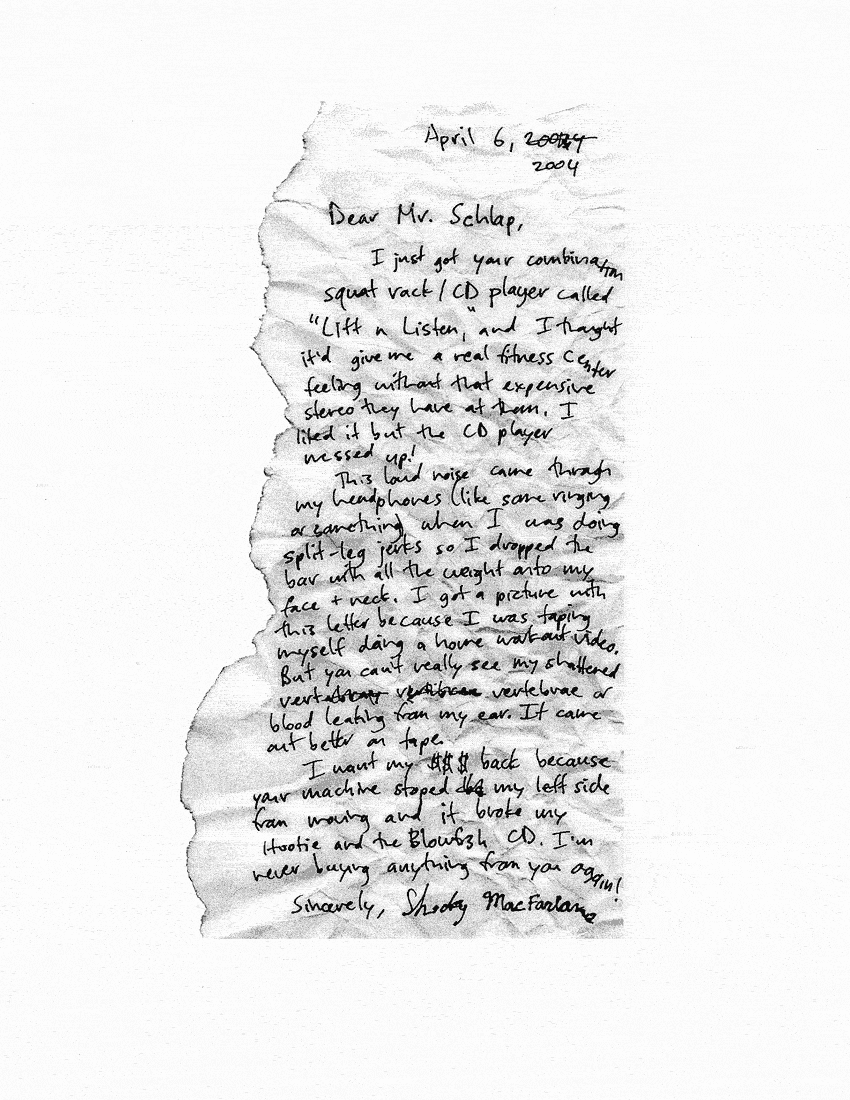 April 6,
2004
Dear Mr. Schlap,
I just got your combination
squat rack / CD player called
"Lift n Listen," and I thought
it'd give me a real fitness center
feeling without that expensive
stereo they have at them. I
liked it but the CD player
messed up!
This loud noise came through
my headphones (like some ringing
or something) when I was doing
split-leg jerks so I dropped the
bar with all the weight onto my
face + neck. I got a picture with
this letter because I was taping
myself doing a home workout video.
But you can't really see my shattered
vertebrae or
blood leaking from my ear. It came
out better on tape.
I want my $$$ back because
your machine stoped my left side
from moving and it broke my
Hootie and the Blowfish CD. I'm
never buying anything from you again!
Sincerely, MacFarlane